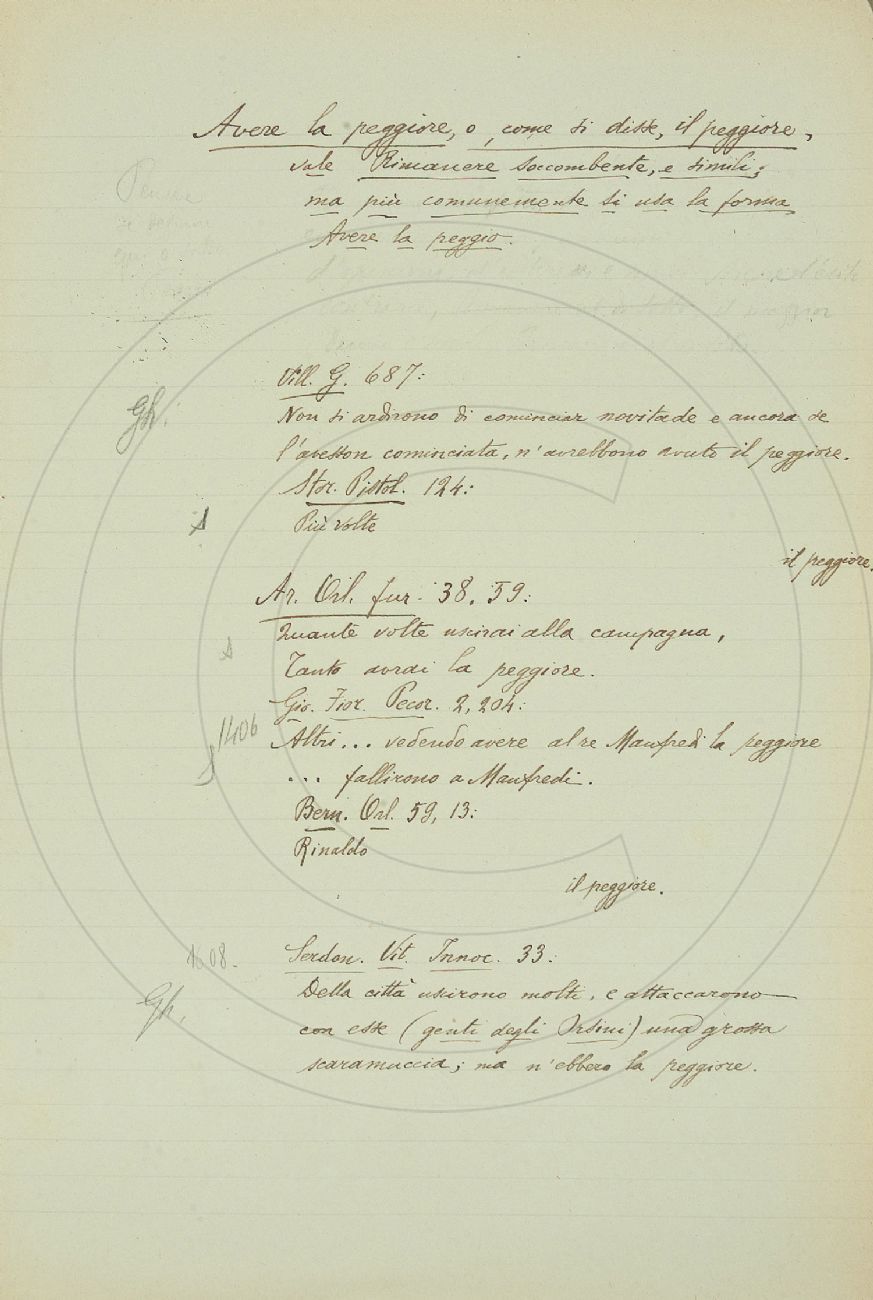 Avere la peggiore, o, come si disse, il peggiore,
vale Rimanere soccombente, e simili;
ma più comunemente si usa la forma
Avere la peggio.
Vill. G. 687:
Gh.
Non si ardirono di cominciar novitade e ancora se
l'avesson cominciata, n'avrebbono avuto il peggiore.
Stor. Pistol. 124:
Più volte
il peggiore.
Ar. Orl. fur. 38. 59:
Quante volte uscirai alla campagna,
Tanto avrai la peggiore.
Gio. Fior. Pecor. 2, 204:
1406
Altri... vedendo avere al re Manfredi la peggiore
... fallirono a Manfredi.
Bern. Orl. 59, 13:
Rinaldo
il peggiore.
1608.
Serdon. Vit. Innoc. 33:
Della città uscirono molti, e attaccarono
Gh.
con esse (genti degli Orsini) una grossa
scaramuccia; ma n'ebbero la peggiore.